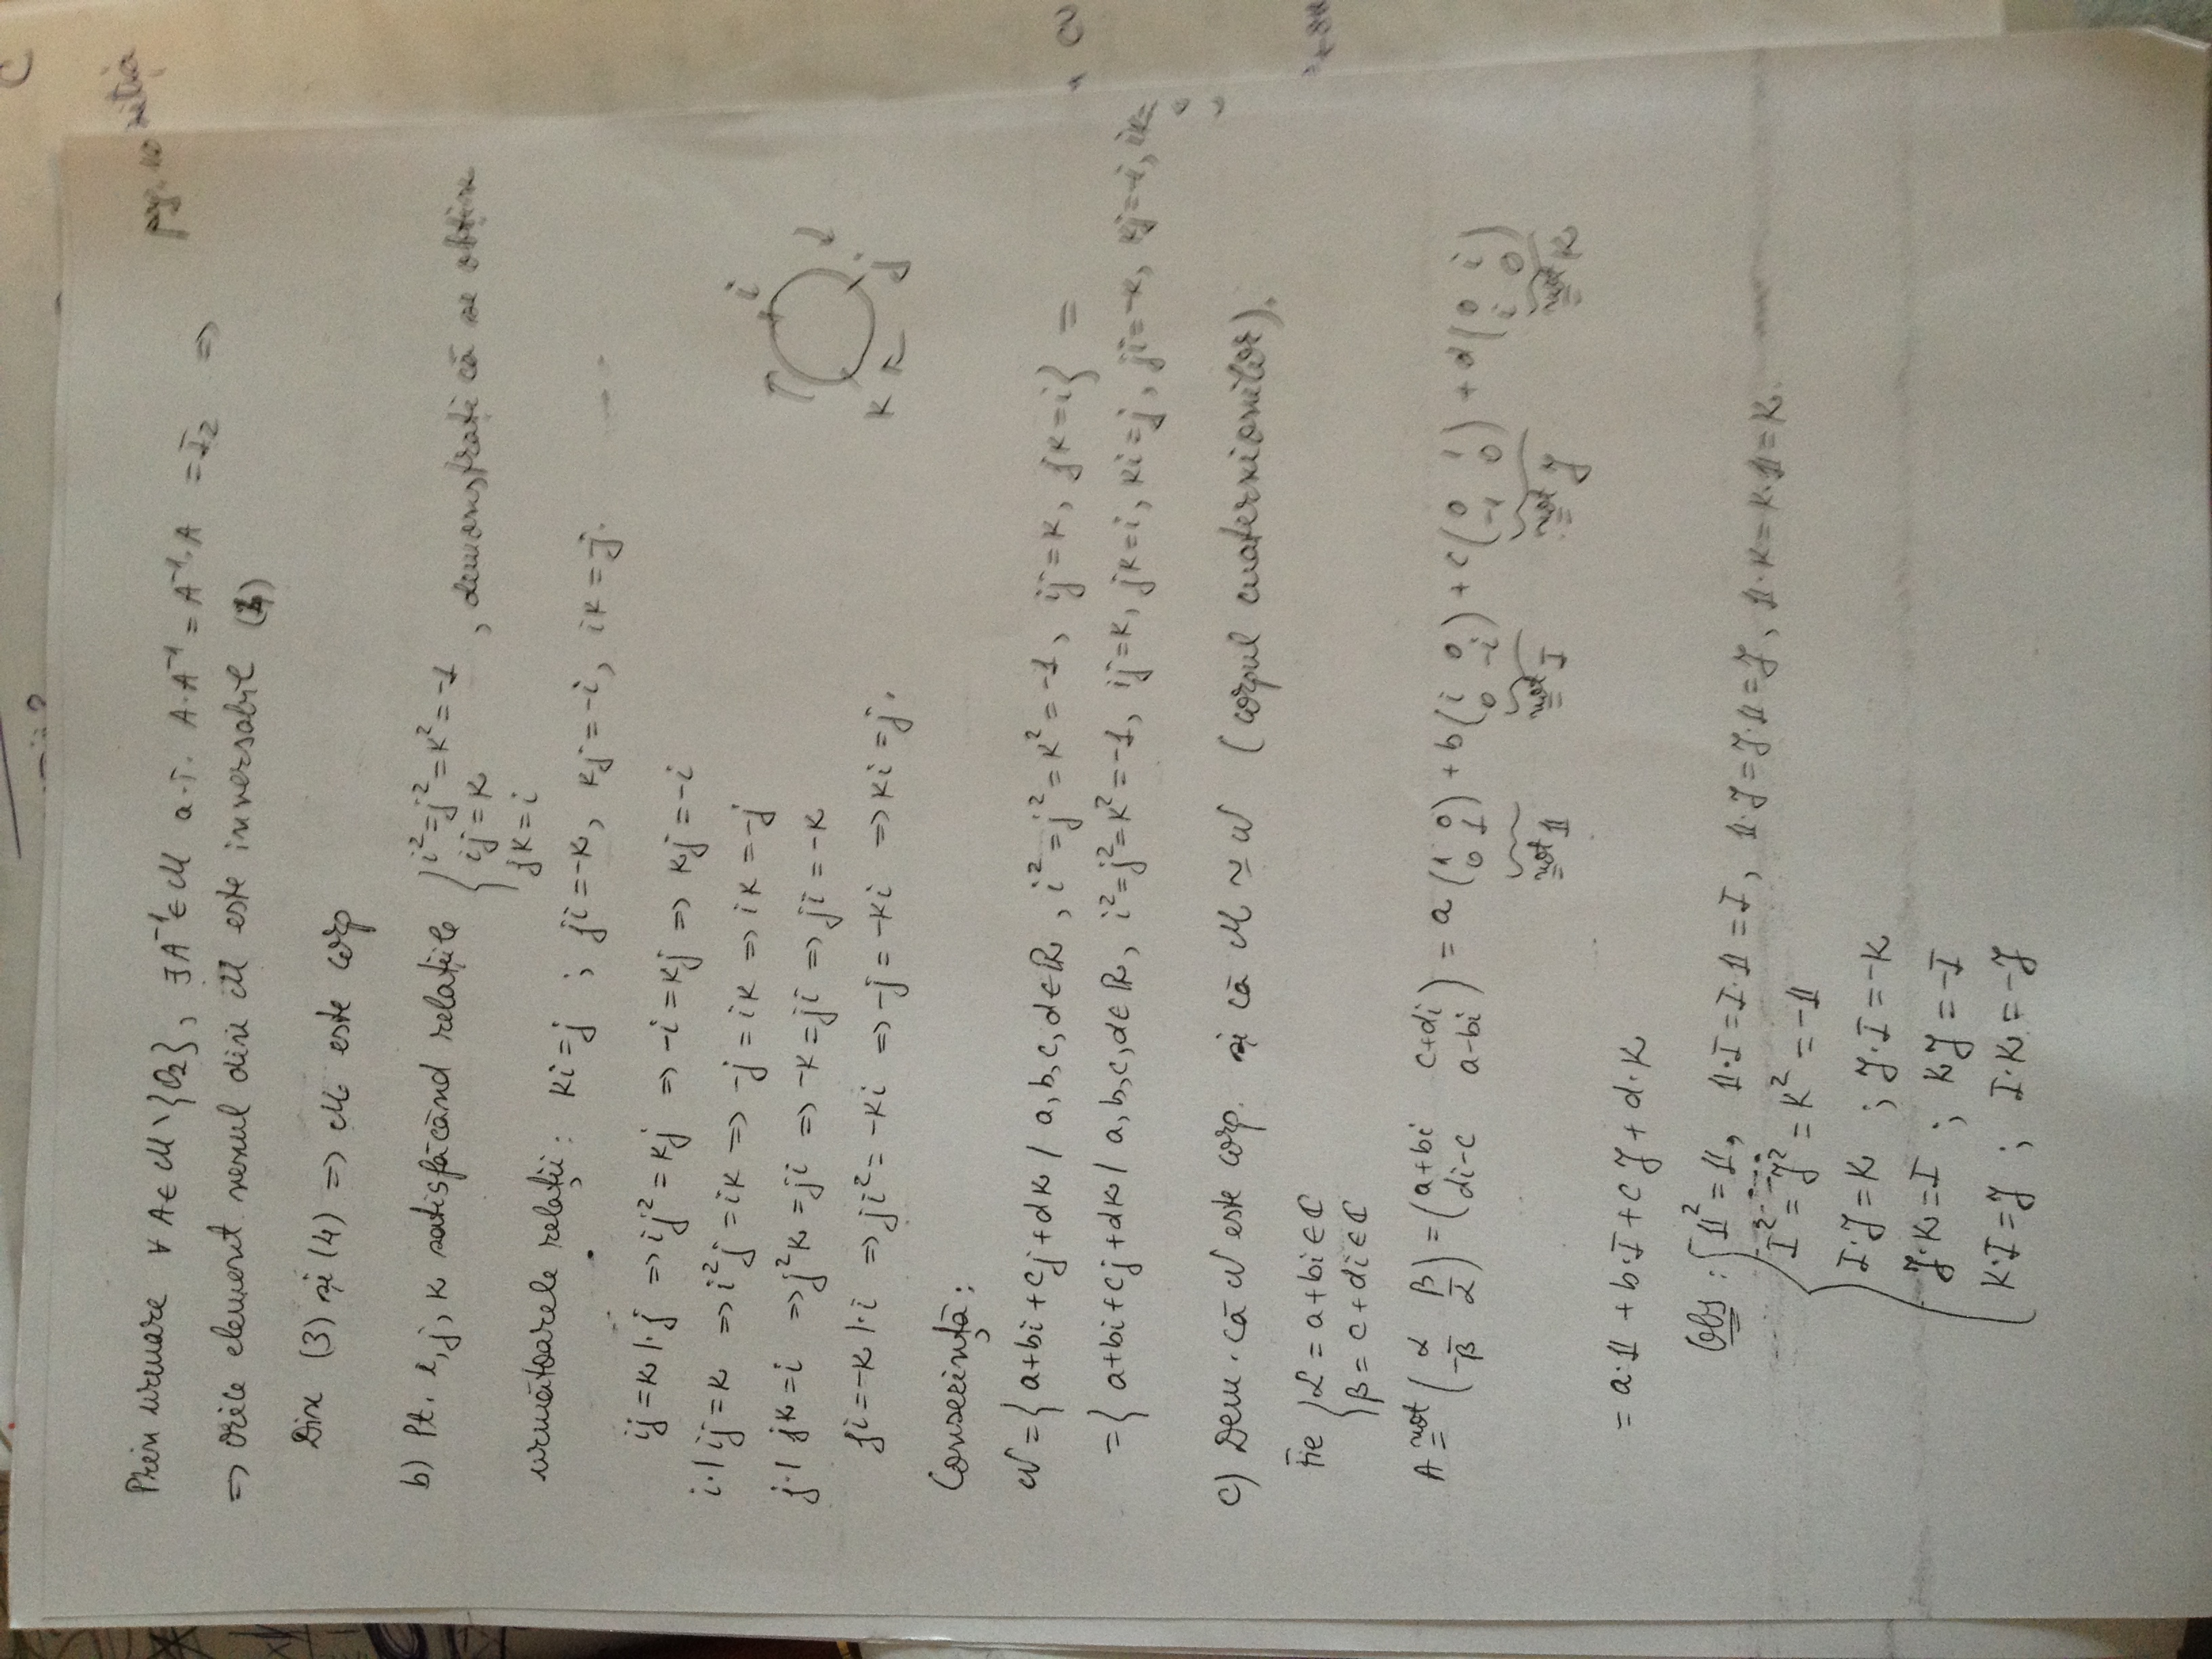 Prin urmare ∀ A ∈ M \ {O₂}, ∃ A⁻¹ ∈ M a.î. A·A⁻¹ = A⁻¹·A = I₂ ⇒
⇒ Orice element nenul din M este inversabil (4)
Din (3) și (4) ⇒ M este corp
b) Pt. i, j, k satisfăcând relațiile { i² = j² = k² = -1
ij = k
jk = i , demonstrați că se obțin
următoarele relații: ki = j ; ji = -k, kj = -i, ik = -j.
ij = k |·j ⇒ ij² = kj ⇒ -i = kj ⇒ kj = -i
i·| ij = k ⇒ i²j = ik ⇒ -j = ik ⇒ ik = -j
j·| jk = i ⇒ j²k = ji ⇒ -k = ji ⇒ ji = -k
ji = -k |·i ⇒ ji² = -ki ⇒ -j = -ki ⇒ ki = j.
i
k j
Consecință:
N = { a+bi+cj+dk / a, b, c, d ∈ ℝ, i² = j² = k² = -1, ij = k, jk = i } =
= { a+bi+cj+dk / a, b, c, d ∈ ℝ, i² = j² = k² = -1, ij = k, jk = i, ki = j, ji = -k, kj = -i, ik =
c) Dem. că N este corp. și că M ≃ N (corpul cuaternionilor).
Fie { α = a+bi ∈ ℂ
β = c+di ∈ ℂ
A not= (α β; -β̄ ᾱ) = (a+bi c+di; di-c a-bi) = a (1 0; 0 1) + b (i 0; 0 -i) + c (0 1; -1 0) + d (0 i; i 0)
not= 𝟙 not= I not= J not= K
= a·𝟙 + b·I + c J + d·K
Obs : { 𝟙² = 𝟙, 𝟙·I = I·𝟙 = I, 𝟙·J = J·𝟙 = J, 𝟙·K = K·𝟙 = K
I² = J² = K² = -𝟙
I·J = K ; J·I = -K
J·K = I ; KJ = -I
K·I = J ; I·K = -J